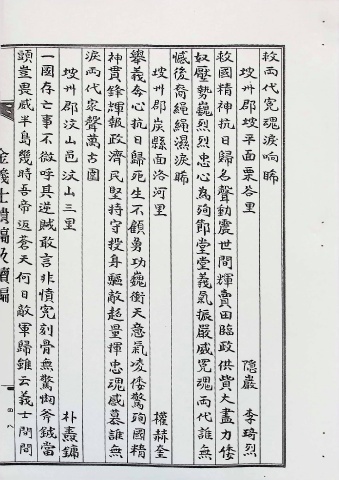 救兩代寃魂淚响睎
坡州郡坡平面栗谷里
隱巖 李琦烈
救國精神抗日歸名聲動震世間輝賣田臨政供貲大盡力倭
奴壓勢巍烈烈忠心為殉節堂堂義氣振嚴威寃魂兩代誰無
憾後裔繩繩濕淚睎
坡州郡炭縣面洛河里
權赫奎
擧義令心抗日歸死生不顧勇功巍衝天意氣凌倭驚殉國精
神貫鋒輝報政濟民堅持守投身驅敵超量揮忠魂感慕誰無
淚兩代家聲萬古圍
坡州郡汶山邑汶山三里
朴熹鏞
一國存亡事不微呼其逆賊敢言非憤寃刻骨無驚
斧鉞當
頭豈畏威半島幾時吾帝返蒼天何日敵軍歸雖云義士間間
金義士遺稿及續編
四八